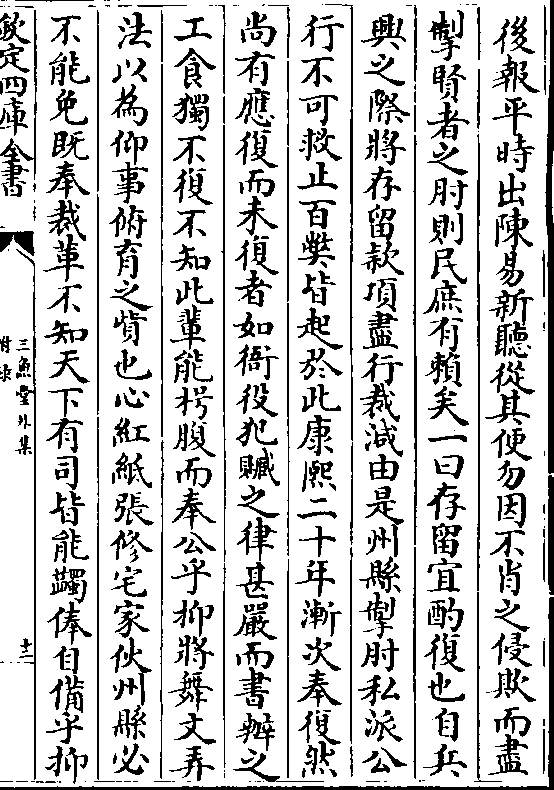 後報平時出陳易新聽從其便勿因不肖之侵欺而盡
掣賢者之肘則民庶有賴矣一曰存留宜酌復也自兵
興之際將存留款項盡行裁減由是州縣掣肘私派公
行不可救止百弊皆起於此康熙二十年漸次奉復然
尚有應復而未復者如衙役犯贓之律甚嚴而書辦之
工食獨不復不知此輩能枵腹而奉公乎抑將舞文弄
法以為仰事俯育之資也心紅紙張修宅家伙州縣必
不能免既奉裁革不知天下有司皆能蠲俸自備乎抑
欽定四庫全書
三魚堂外集
附錄
十二